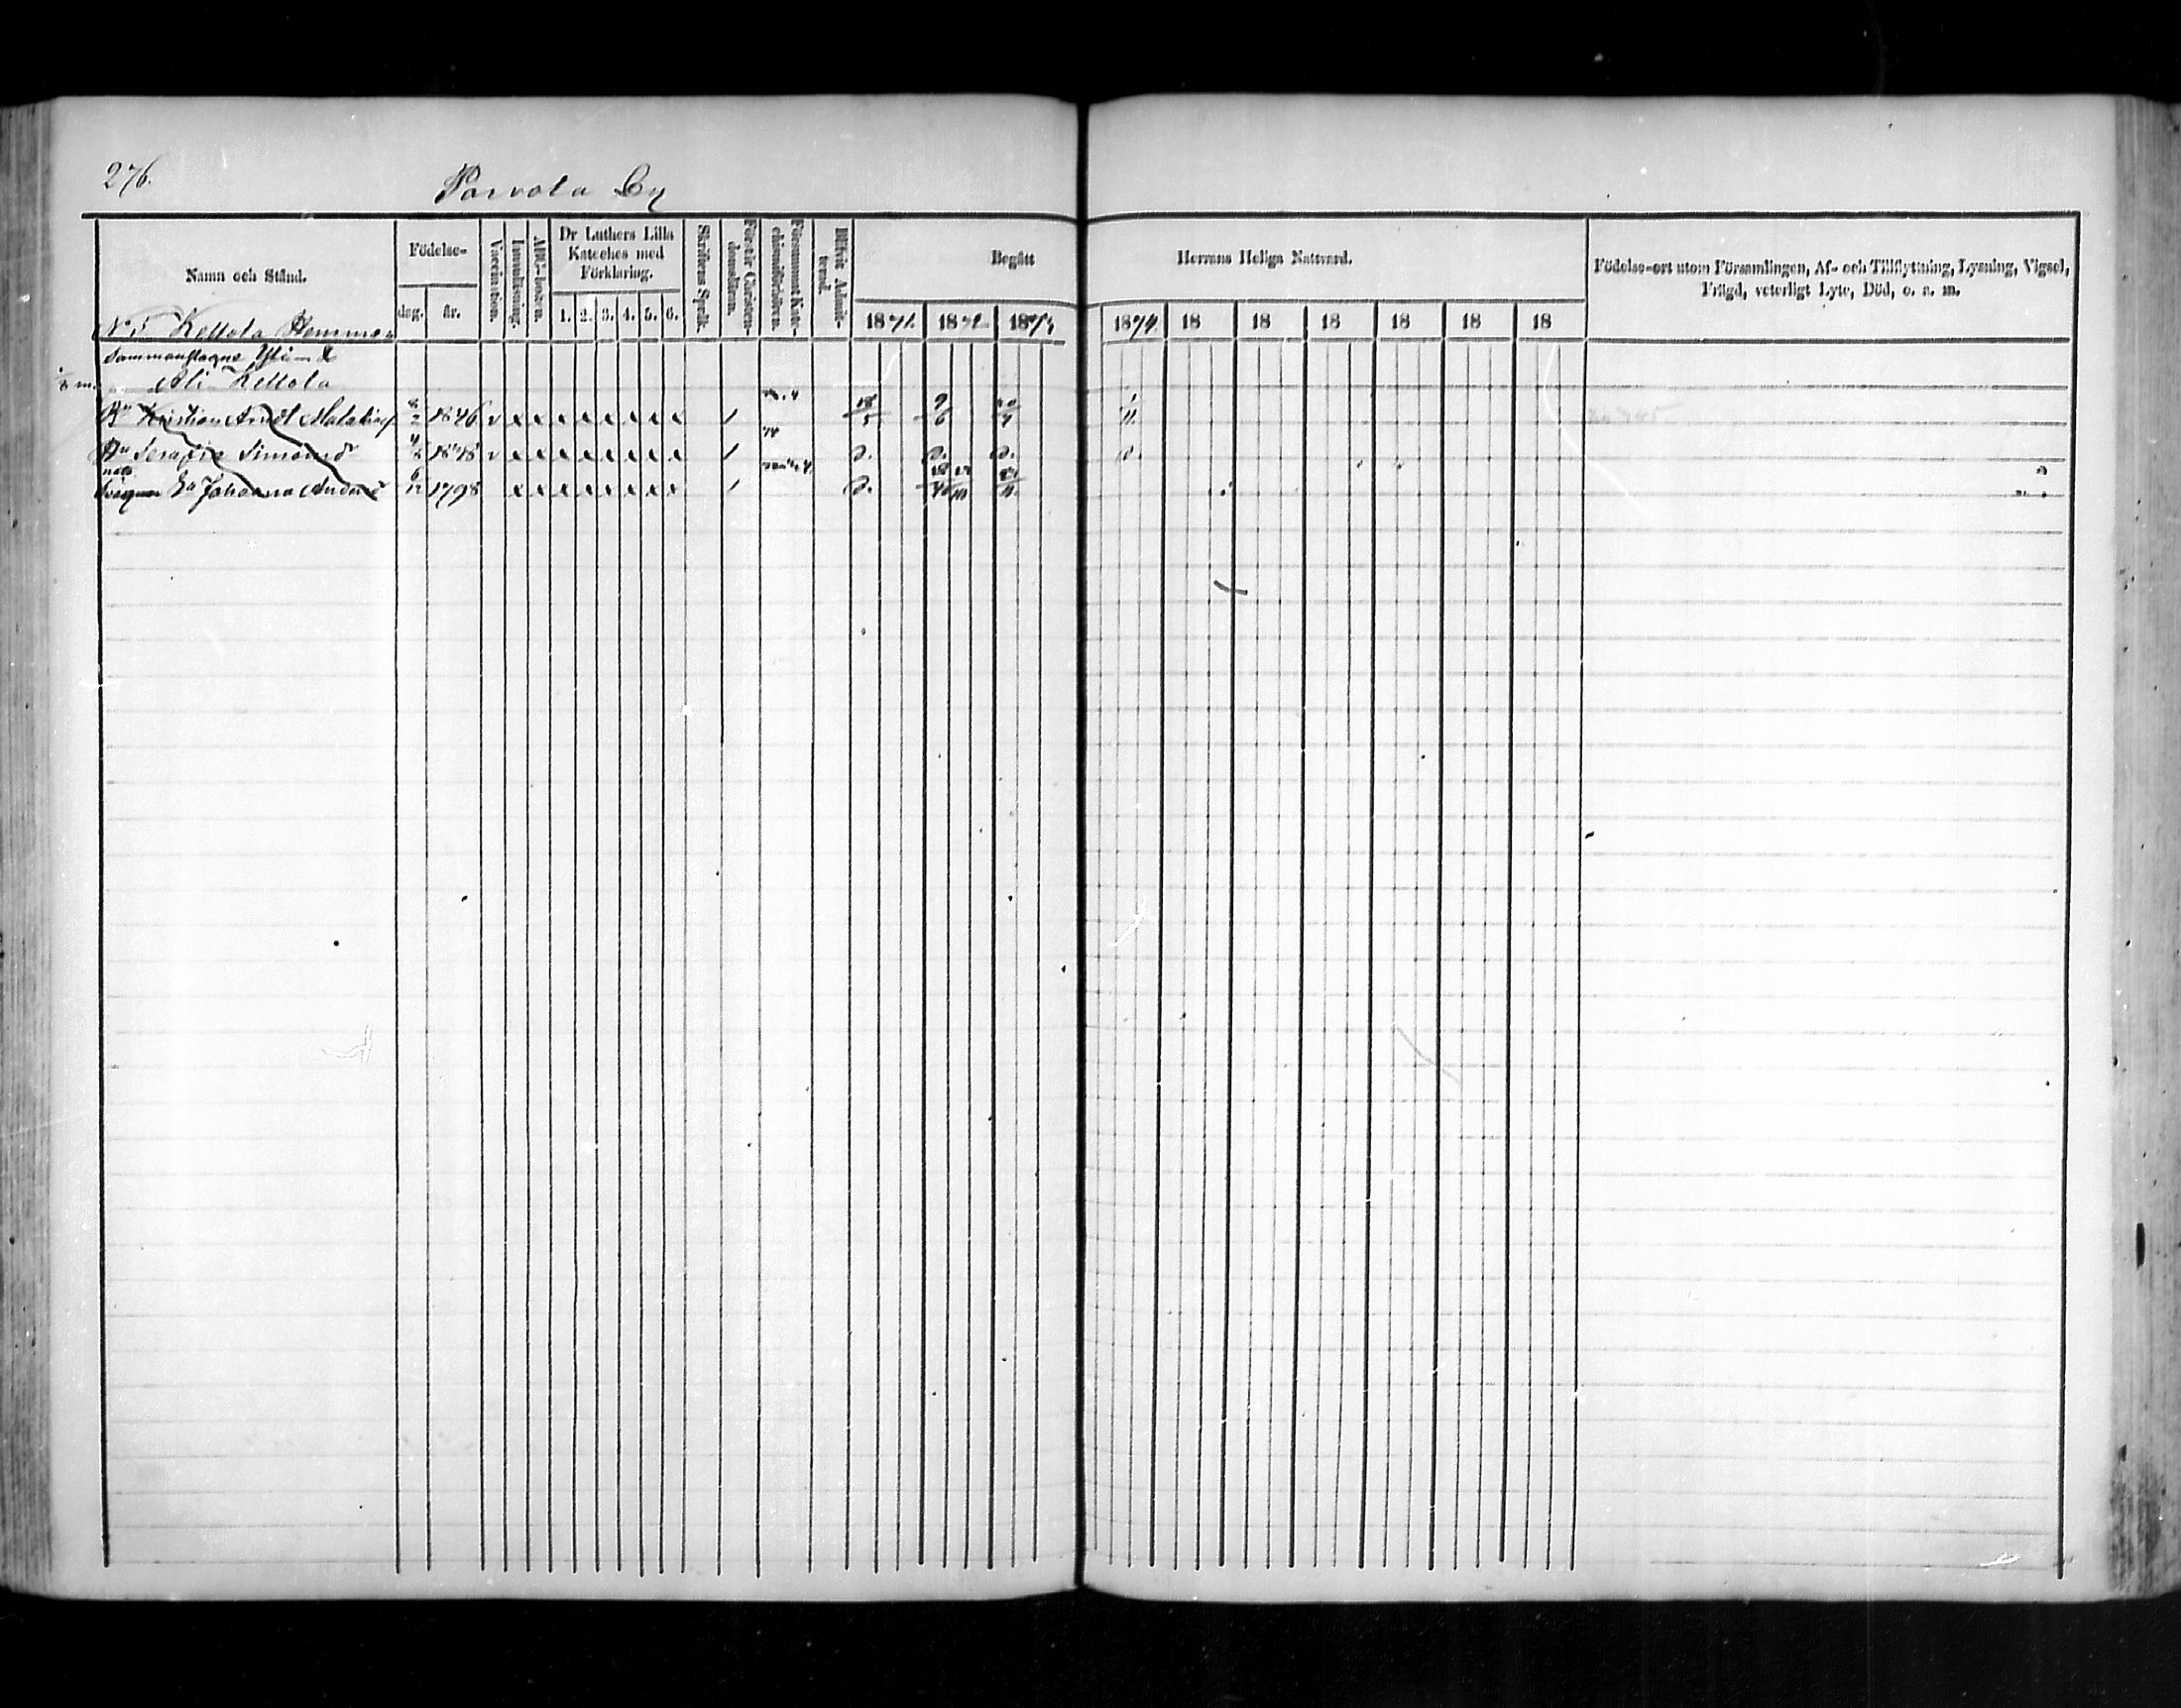 276.
Porvola By
Namn och Stånd.
Födelse-
dag. år.
Vaccination.
Innanläsning.
ABC-boken.
Dr Luthers Lilla Kateches med Förklaring.
1. 2. 3. 4. 5. 6.
Skriftens Språk.
Förstår Christendomsläran.
Försummat Katechismiförhören.
Blifvit Admitterad.
Begått Herrans Heliga Nattvard.
1871. 1872 1873 1874. 18 18 18 18 18 18
Födelse-ort utom Församlingen, Af- och Tillflyttning, Lysning, Vigsel, Frägd, veterligt Lyte, Död, o. s. m.
N:o 5 Kettola Hemman
Sammanslagne Yli- &
Ali Kettola
Kristian Andt 1846 v x x x x x x x x / 18/5 9/6 1/11
Serafia Simonsdr 1848 v x x x x x x x x / D. D. D. D.
Johanna Andersd 6/12 1798 x x x x x x x x / D.